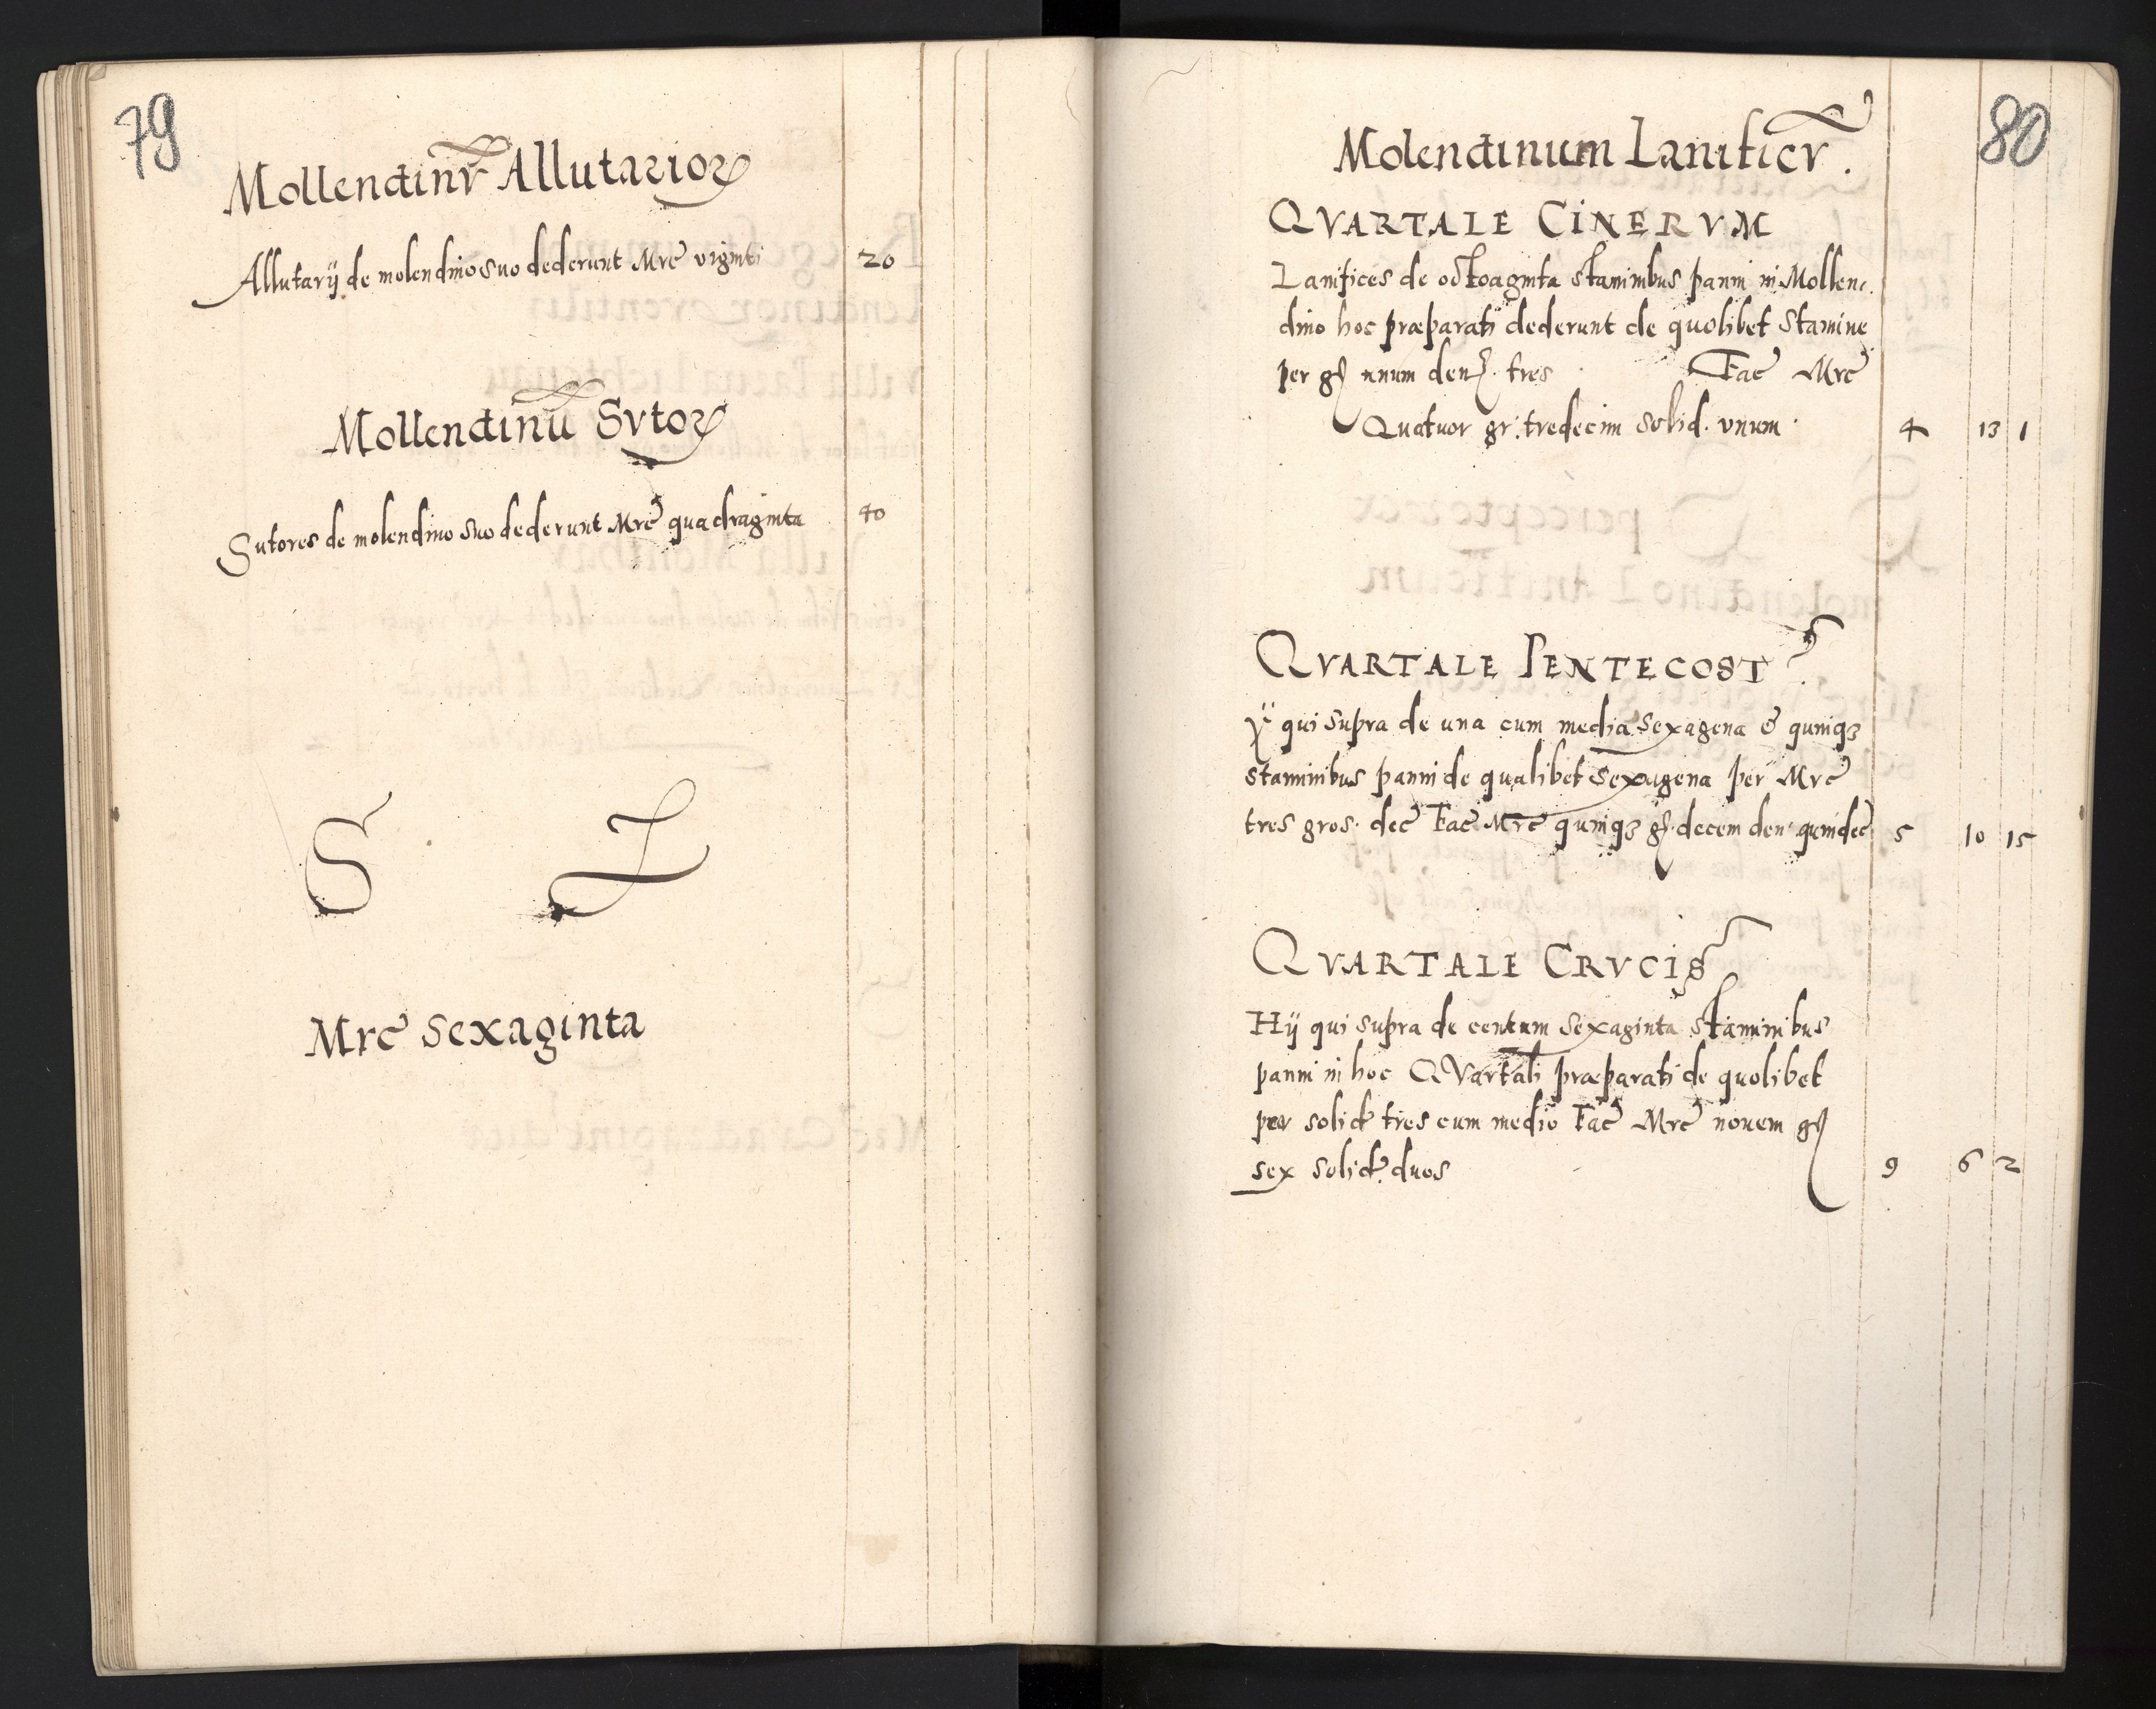 79
Mollendinv̄ Allutarioꝝ
Allutarij de molendino suo dederunt Mrc̄ viginti 20
Mollendinū Svtoꝝ
Sutores de molendino suo dederunt Mrc̄ quadraginta 40
S
Mrc̄ Sexaginta
80
Molendinum Lanificv̄.
QVARTALE CINERVM
Lanifices de octoaginta staminibus panni in Mollen
dino hoc præparati dederunt de quolibet stamine
per gꝭ unum den. tres Fac̄ Mrc̄
Quatuor gr. tredecim solid. vnum 4 13 1
QVARTALE PENTECOST
ij qui supra de una cum media sexagena & quinqꝫ
staminibus panni de qualibet sexagena per Mrc̄
tres gros. dec̄ Fac̄ Mrc̄ quinqꝫ gꝭ. decem den quindec̄ 5 10 15
QVARTALE CRVCIS
Hij qui supra de centum sexaginta staminibus
panni in hoc QVartali præparati de quolibet
per solid tres cum medio Fac̄ Mrc̄ nouem gꝭ
sex solid. duos 9 6 2